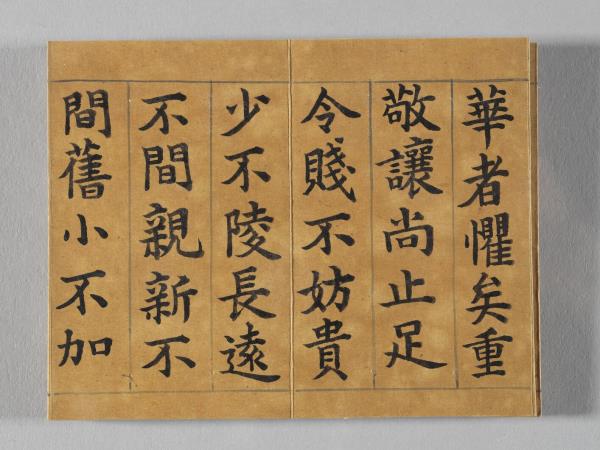 華者懼矣重
敬讓尚止足
令賤不妨貴
少不陵長遠
不間親新不
間舊小不加